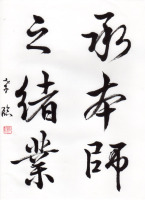 承本師
之緒業